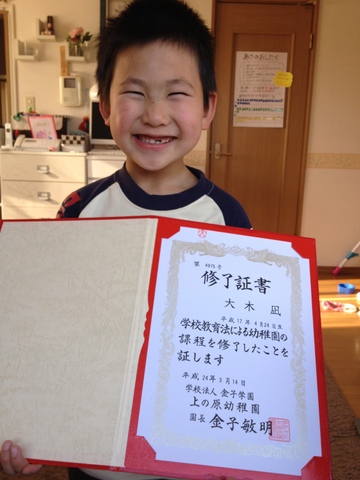 あさのおしたく
第 4975 号
修了証書
大木 凪
平成17年 4月24日生
学校教育法による幼稚園の
課程を修了したことを
証します
平成24年3月14日
学校法人 金子学園
上の原幼稚園
園長 金子敏明